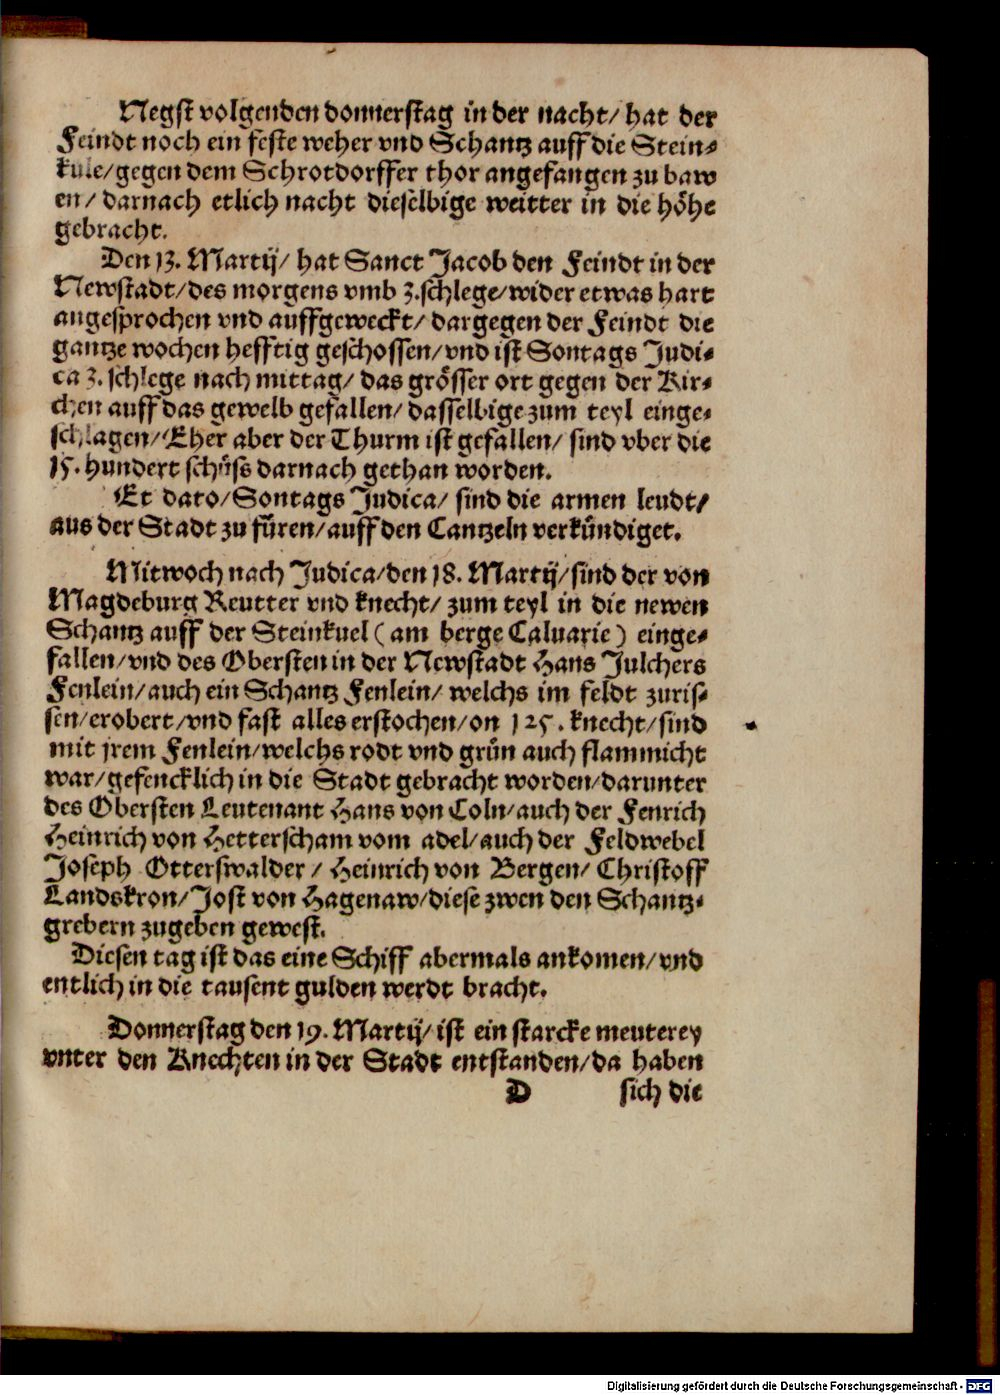 Negst volgenden donnerstag in der nacht/ hat der
Feindt noch ein feste weher vnd Schantz auff die Stein⸗
kule/gegen dem Schrotdorffer thor angefangen zu baw
en/ darnach etlich nacht dieselbige weitter in die höhe
gebracht.
Den 13. Martij/ hat Sanct Jacob den Feindt in der
Newstadt/des morgens vmb 3.schlege/wider etwas hart
angesprochen vnd auffgeweckt/ dargegen der Feindt die
gantze wochen hefftig geschossen/vnd ist Sontags Judi⸗
ca 3. schlege nach mittag/ das grösser ort gegen der Kir⸗
chen auff das gewelb gefallen/ dasselbige zum teyl einge⸗
schlagen/Eher aber der Thurm ist gefallen/ sind vber die
15. hundert schüss darnach gethan worden.
Et dato/Sontags Judica/ sind die armen leudt/
aus der Stadt zu füren/auff den Cantzeln verkündiget.
Mitwoch nach Judica/den 18. Martij/sind der von
Magdeburg Reutter vnd knecht/ zum teyl in die newen
Schantz auff der Steinkuel ( am berge Caluarie ) einge⸗
fallen/vnd des Obersten in der Newstadt Hans Julchers
Fenlein/auch ein Schantz Fenlein/ welchs im feldt zuris⸗
sen/erobert/vnd fast alles erstochen/on 125. knecht/sind
mit jrem Fenlein/welchs rodt vnd grün auch flammicht
war/gefencklich in die Stadt gebracht worden/darunter
des Obersten Leutenant Hans von Coln/auch der Fenrich
Heinrich von Hetterscham vom adel/auch der Feldwebel
Joseph Otterswalder / Heinrich von Bergen/ Christoff
Landskron/Jost von Hagenaw/diese zwen den Schantz⸗
grebern zugeben gewest.
Diesen tag ist das eine Schiff abermals ankomen/vnd
entlich in die tausent gulden werdt bracht.
Donnerstag den 19. Martij/ ist ein starcke meuterey
vnter den Knechten in der Stadt entstanden/da haben
D sich die
Digitalisierung gefördert durch die Deutsche Forschungsgemeinschaft - DFG